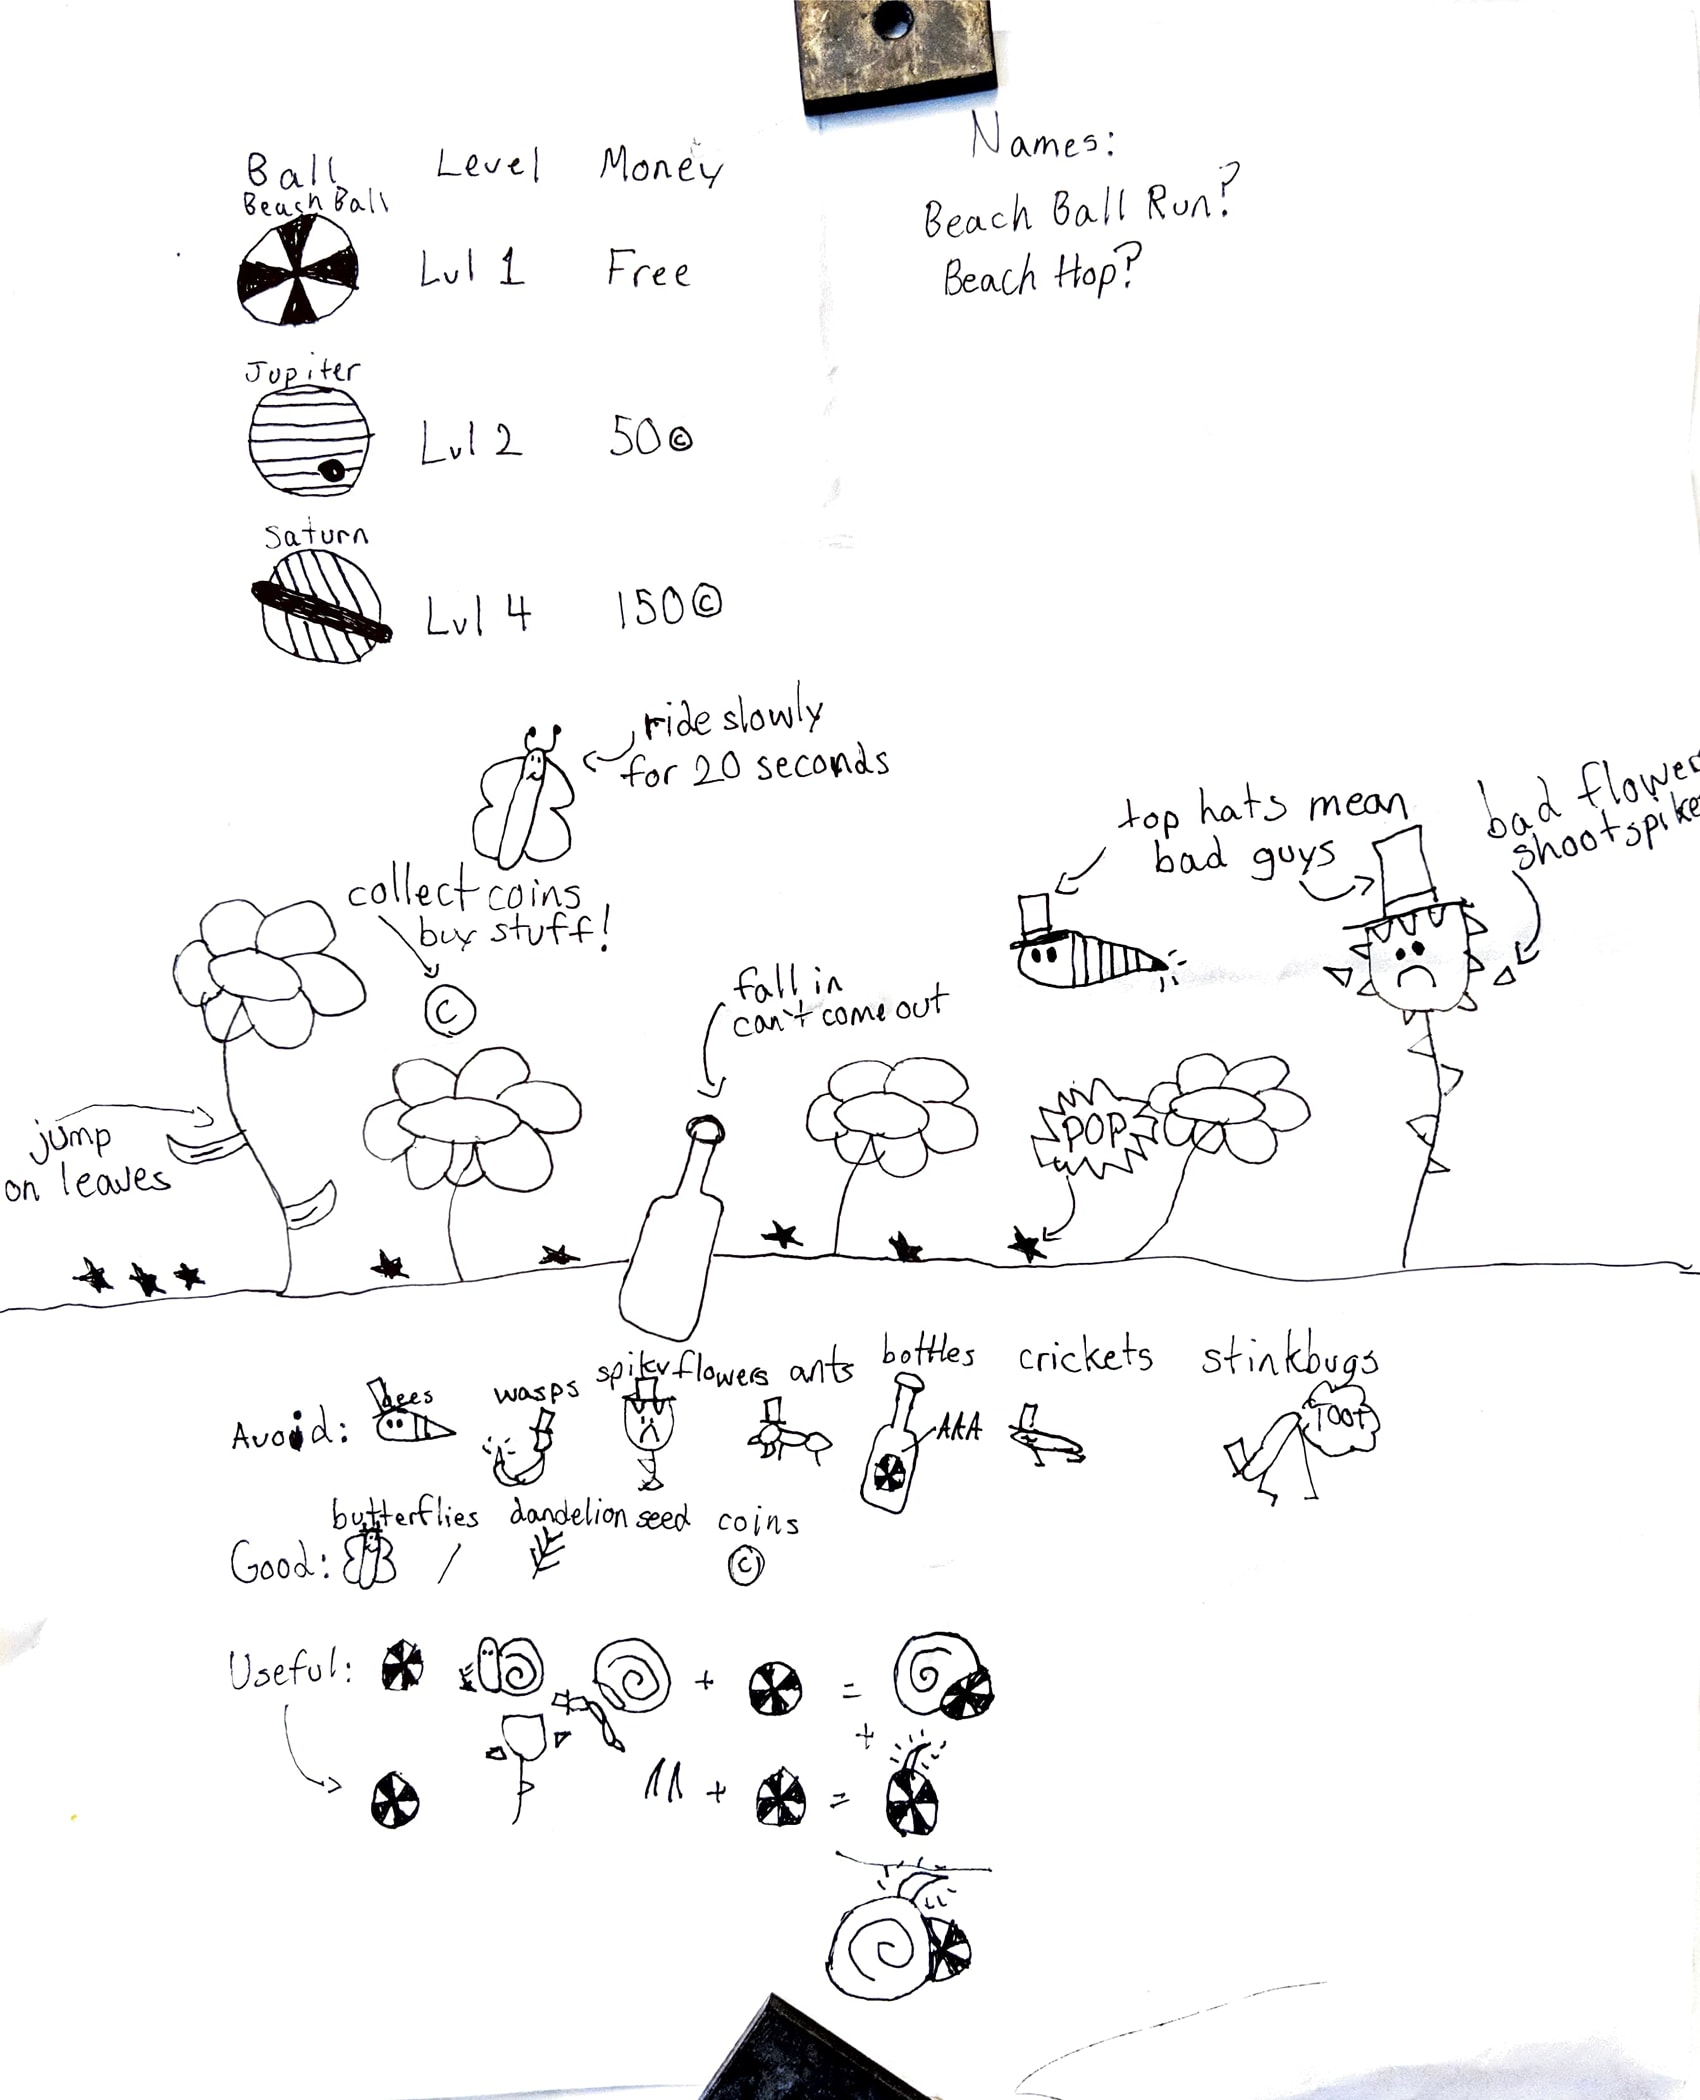 Names:
Beach Ball Run?
Beach Hop?
Ball Level Money
Beach Ball
Lvl 1 Free
Jupiter
Lvl 2 50©
Saturn
Lvl 4 150©
ride slowly
for 20 seconds
collect coins
buy stuff!
C
top hats mean
bad guys
bad flower
shoot spike
fall in
can't come out
jump
on leaves
POP
Avoid: bees wasps spiky flowers ants bottles crickets stinkbugs
AAA
TOOT
Good: butterflies / dandelion seed coins
C
Useful: + =
+
+ =